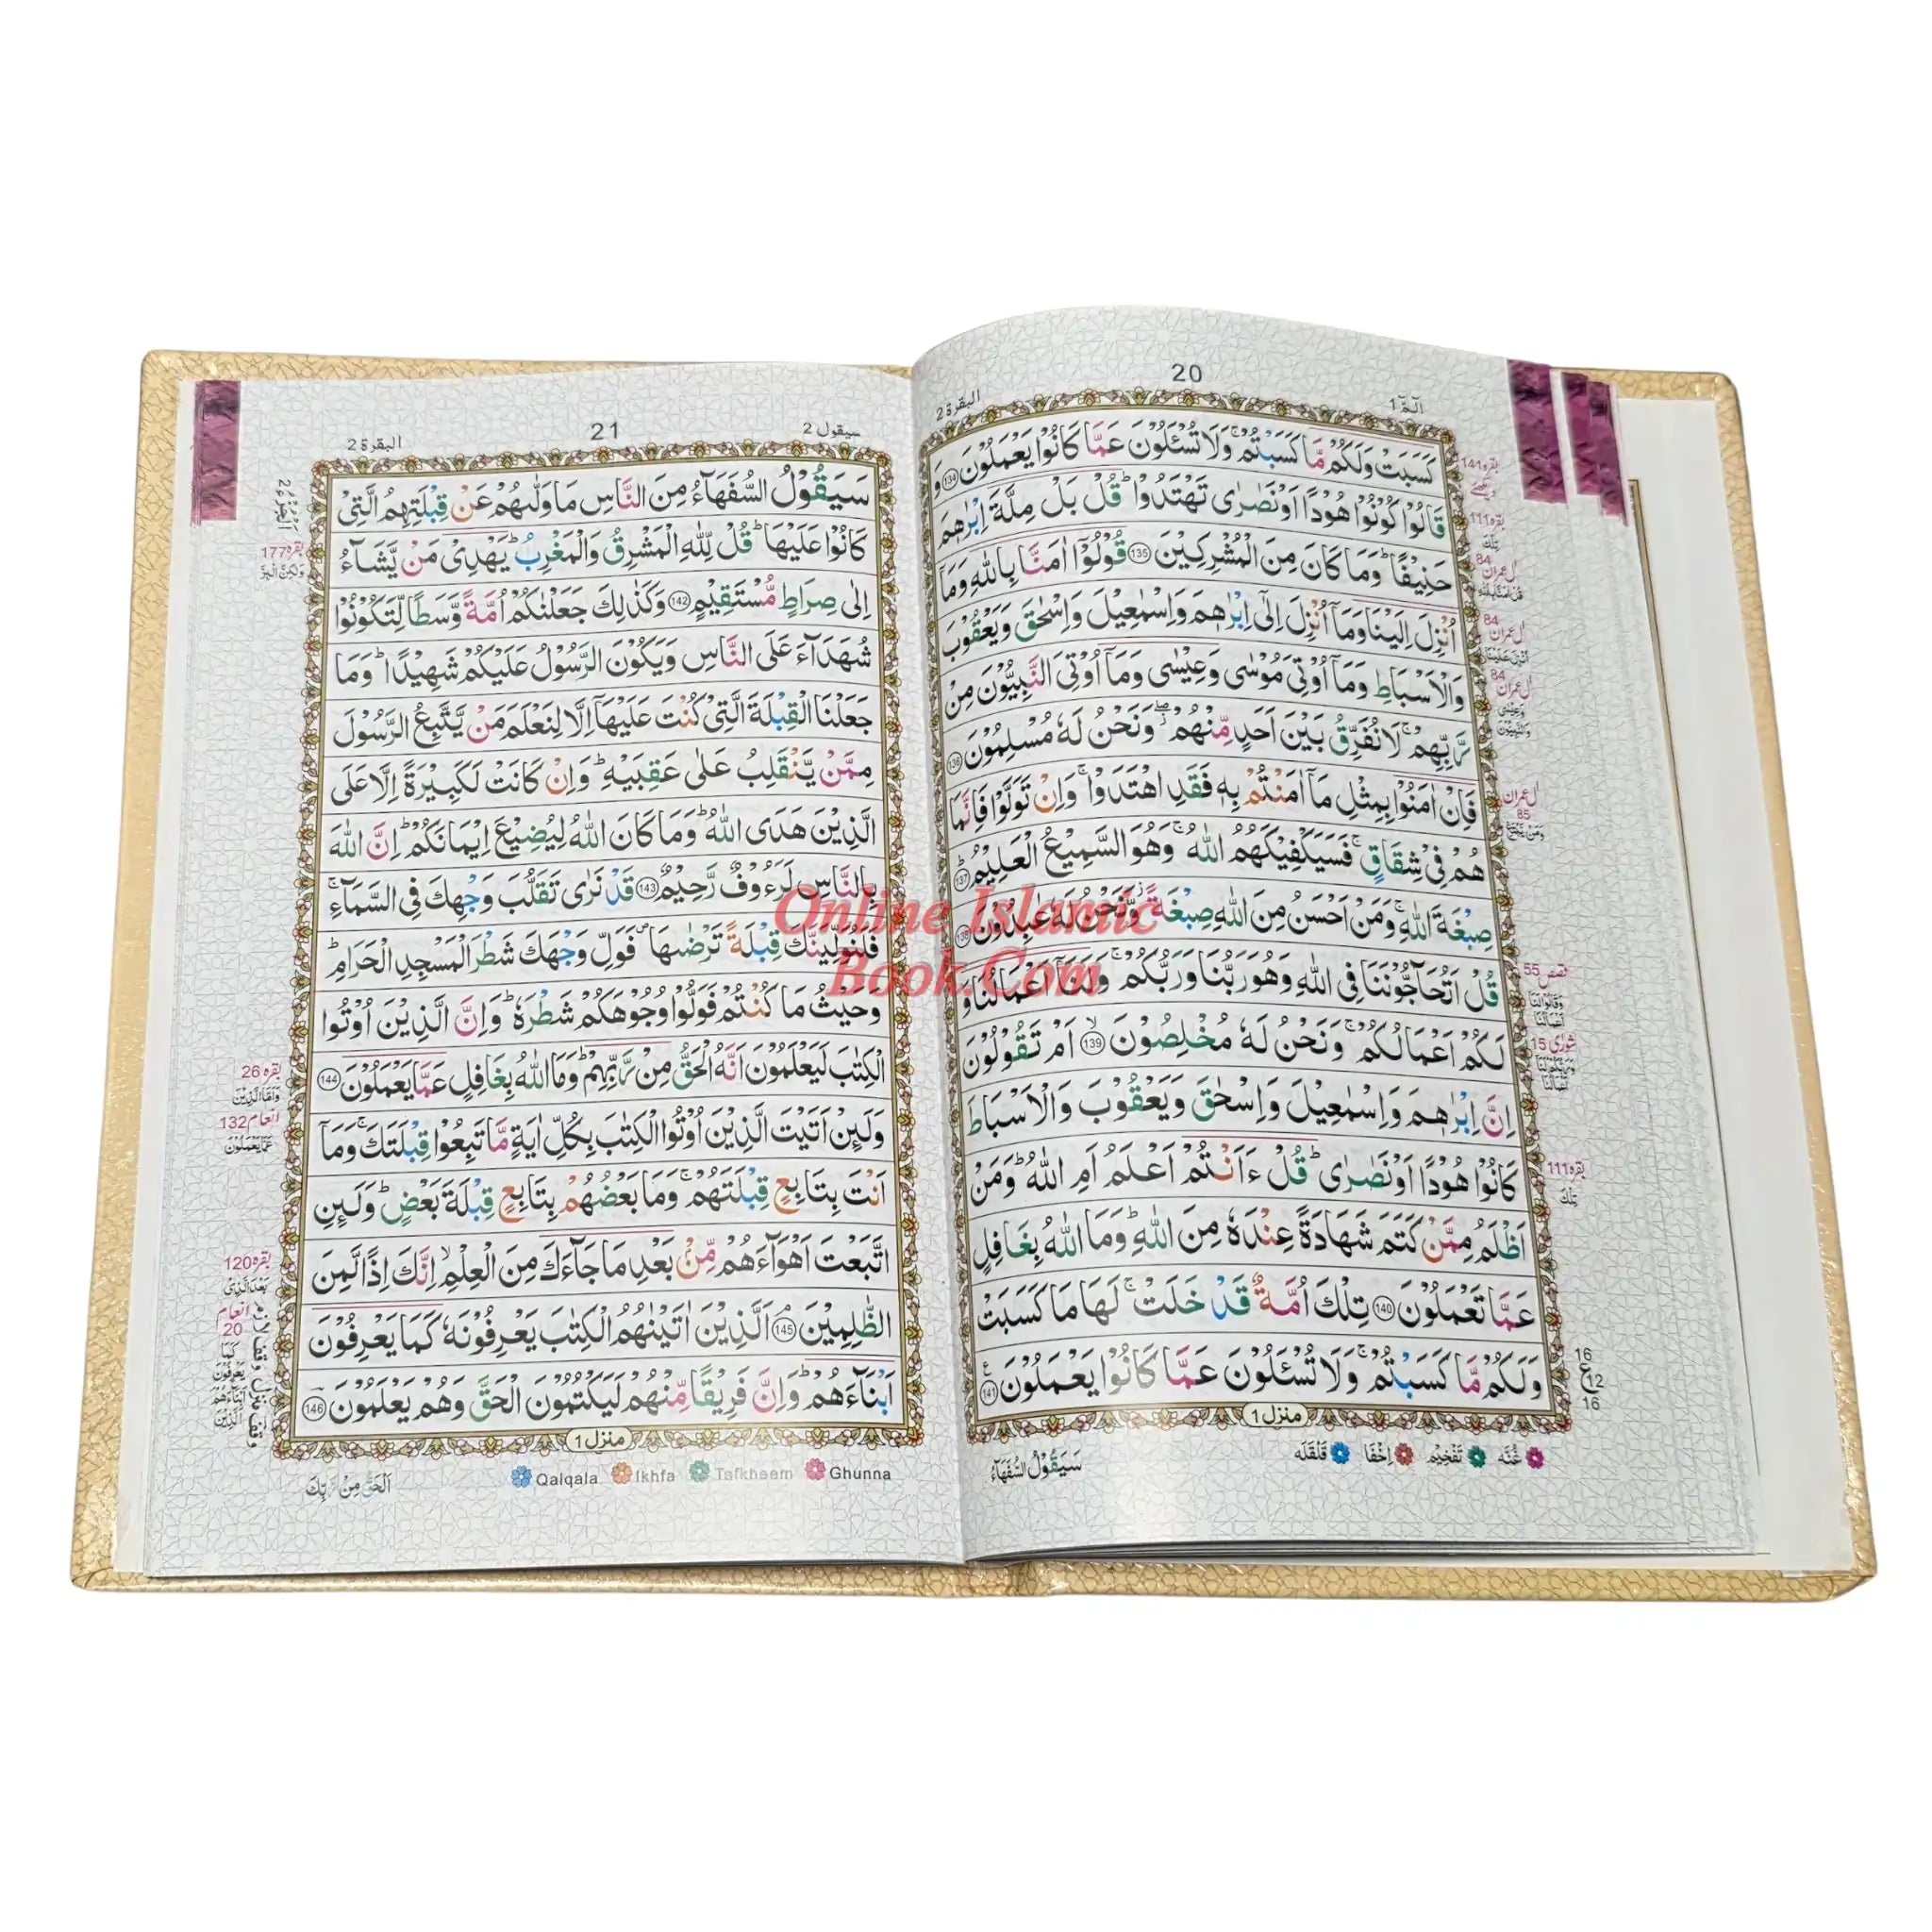 20
الٓمّٓ 1
البقرة 2
كَسَبَتْ وَلَكُمْ مَّا كَسَبْتُمْ ۚ وَلَا تُسْـَٔلُوْنَ عَمَّا كَانُوْا يَعْمَلُوْنَ 134 وَ
قَالُوْا كُوْنُوْا هُوْدًا اَوْ نَصٰرٰى تَهْتَدُوْا ؕ قُلْ بَلْ مِلَّةَ اِبْرٰهٖمَ
حَنِيْفًا ؕ وَمَا كَانَ مِنَ الْمُشْرِكِيْنَ 135 قُوْلُوْٓا اٰمَنَّا بِاللّٰهِ وَمَآ
اُنْزِلَ اِلَيْنَا وَمَآ اُنْزِلَ اِلٰٓى اِبْرٰهٖمَ وَاِسْمٰعِيْلَ وَاِسْحٰقَ وَيَعْقُوْبَ
وَالْاَسْبَاطِ وَمَآ اُوْتِىَ مُوْسٰى وَعِيْسٰى وَمَآ اُوْتِىَ النَّبِيُّوْنَ مِنْ
رَّبِّهِمْ ۚ لَا نُفَرِّقُ بَيْنَ اَحَدٍ مِّنْهُمْ ۖ وَنَحْنُ لَهٗ مُسْلِمُوْنَ 136
فَاِنْ اٰمَنُوْا بِمِثْلِ مَآ اٰمَنْتُمْ بِهٖ فَقَدِ اهْتَدَوْا ۚ وَاِنْ تَوَلَّوْا فَاِنَّمَا
هُمْ فِىْ شِقَاقٍ ۚ فَسَيَكْفِيْكَهُمُ اللّٰهُ ۚ وَهُوَ السَّمِيْعُ الْعَلِيْمُ 137
صِبْغَةَ اللّٰهِ ۚ وَمَنْ اَحْسَنُ مِنَ اللّٰهِ صِبْغَةً ۚ وَّنَحْنُ لَهٗ عٰبِدُوْنَ 138
قُلْ اَتُحَآجُّوْنَنَا فِى اللّٰهِ وَهُوَ رَبُّنَا وَرَبُّكُمْ ۚ وَلَنَآ اَعْمَالُنَا وَ
لَكُمْ اَعْمَالُكُمْ ۚ وَنَحْنُ لَهٗ مُخْلِصُوْنَ 139 اَمْ تَقُوْلُوْنَ
اِنَّ اِبْرٰهٖمَ وَاِسْمٰعِيْلَ وَاِسْحٰقَ وَيَعْقُوْبَ وَالْاَسْبَاطَ
كَانُوْا هُوْدًا اَوْ نَصٰرٰى ؕ قُلْ ءَاَنْتُمْ اَعْلَمُ اَمِ اللّٰهُ ؕ وَمَنْ
اَظْلَمُ مِمَّنْ كَتَمَ شَهَادَةً عِنْدَهٗ مِنَ اللّٰهِ ؕ وَمَا اللّٰهُ بِغَافِلٍ
عَمَّا تَعْمَلُوْنَ 140 تِلْكَ اُمَّةٌ قَدْ خَلَتْ ۚ لَهَا مَا كَسَبَتْ
وَلَكُمْ مَّا كَسَبْتُمْ ۚ وَلَا تُسْـَٔلُوْنَ عَمَّا كَانُوْا يَعْمَلُوْنَ 141
منزل 1
غُنَّه تَفْخِيْم اِخْفَا قَلْقَلَه
سَيَقُوْلُ السُّفَهَآءُ
بقره 141
بقره 111
تِلْكَ
اٰل عمران 84
اٰل عمران 84
اٰل عمران 84
اٰل عمران 85
قصص 55
شورٰى 15
بقره 111
تِلْكَ
16
ع 12
16
21
سيقول 2
البقرة 2
سَيَقُوْلُ السُّفَهَآءُ مِنَ النَّاسِ مَا وَلّٰٮهُمْ عَنْ قِبْلَتِهِمُ الَّتِىْ
كَانُوْا عَلَيْهَا ؕ قُلْ لِّلّٰهِ الْمَشْرِقُ وَالْمَغْرِبُ ؕ يَهْدِىْ مَنْ يَّشَآءُ
اِلٰى صِرَاطٍ مُّسْتَقِيْمٍ 142 وَكَذٰلِكَ جَعَلْنٰكُمْ اُمَّةً وَّسَطًا لِّتَكُوْنُوْا
شُهَدَآءَ عَلَى النَّاسِ وَيَكُوْنَ الرَّسُوْلُ عَلَيْكُمْ شَهِيْدًا ؕ وَمَا
جَعَلْنَا الْقِبْلَةَ الَّتِىْ كُنْتَ عَلَيْهَآ اِلَّا لِنَعْلَمَ مَنْ يَّتَّبِعُ الرَّسُوْلَ
مِمَّنْ يَّنْقَلِبُ عَلٰى عَقِبَيْهِ ؕ وَاِنْ كَانَتْ لَكَبِيْرَةً اِلَّا عَلَى
الَّذِيْنَ هَدَى اللّٰهُ ؕ وَمَا كَانَ اللّٰهُ لِيُضِيْعَ اِيْمَانَكُمْ ؕ اِنَّ اللّٰهَ
بِالنَّاسِ لَرَءُوْفٌ رَّحِيْمٌ 143 قَدْ نَرٰى تَقَلُّبَ وَجْهِكَ فِى السَّمَآءِ ۚ
فَلَنُوَلِّيَنَّكَ قِبْلَةً تَرْضٰىهَا ۖ فَوَلِّ وَجْهَكَ شَطْرَ الْمَسْجِدِ الْحَرَامِ ؕ
وَحَيْثُ مَا كُنْتُمْ فَوَلُّوْا وُجُوْهَكُمْ شَطْرَهٗ ؕ وَاِنَّ الَّذِيْنَ اُوْتُوا
الْكِتٰبَ لَيَعْلَمُوْنَ اَنَّهُ الْحَقُّ مِنْ رَّبِّهِمْ ؕ وَمَا اللّٰهُ بِغَافِلٍ عَمَّا يَعْمَلُوْنَ 144
وَلَئِنْ اَتَيْتَ الَّذِيْنَ اُوْتُوا الْكِتٰبَ بِكُلِّ اٰيَةٍ مَّا تَبِعُوْا قِبْلَتَكَ ۚ وَمَآ
اَنْتَ بِتَابِعٍ قِبْلَتَهُمْ ۚ وَمَا بَعْضُهُمْ بِتَابِعٍ قِبْلَةَ بَعْضٍ ؕ وَلَئِنِ
اتَّبَعْتَ اَهْوَآءَهُمْ مِّنْۢ بَعْدِ مَا جَآءَكَ مِنَ الْعِلْمِ ۙ اِنَّكَ اِذًا لَّمِنَ
الظّٰلِمِيْنَ 145 اَلَّذِيْنَ اٰتَيْنٰهُمُ الْكِتٰبَ يَعْرِفُوْنَهٗ كَمَا يَعْرِفُوْنَ
اَبْنَآءَهُمْ ؕ وَاِنَّ فَرِيْقًا مِّنْهُمْ لَيَكْتُمُوْنَ الْحَقَّ وَهُمْ يَعْلَمُوْنَ 146
منزل 1
Qalqala Ikhfa Tafkheem Ghunna
اَلْحَقُّ مِنْ رَّبِّكَ
اَلْجُزْءُ 2
بقره 177
وَلٰكِنَّ الْبِرَّ
بقره 26
وَاَمَّا الَّذِيْنَ
انعام 132
عَمَّا يَعْمَلُوْنَ
بقره 120
بَعْدَ الَّذِىْ
انعام 20
كَمَا
يَعْرِفُوْنَ
اَبْنَآءَهُمْ
اَلَّذِيْنَ
Online Islamic
Book.Com